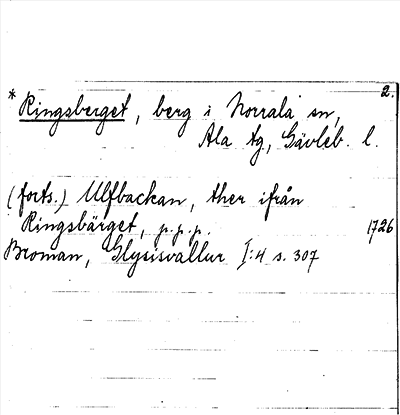 2.
* Ringsberget, berg i Norrala sn,
Ala tg, Gävleb. l.
(forts.) Ulfbackan, ther ifrån
Ringsbärget, p.p.p. 1726
Broman, Glysisvallur I:4 s. 307